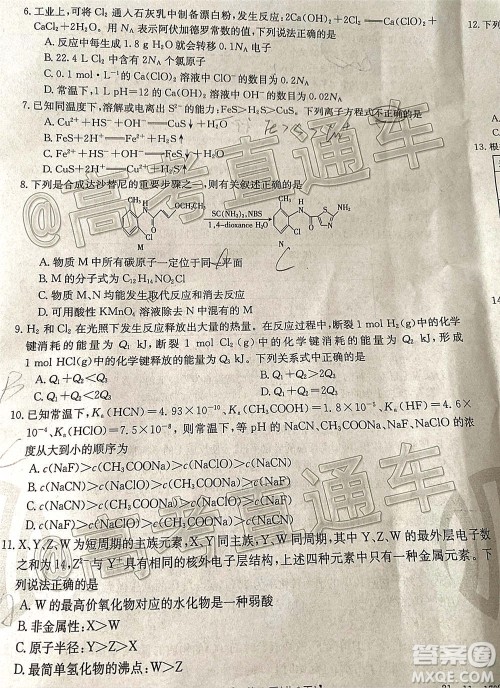 6. 工业上,可将 Cl₂ 通入石灰乳中制备漂白粉,发生反应: 2Ca(OH)₂+2Cl₂══Ca(ClO)₂+
CaCl₂+2H₂O。用 Nₐ 表示阿伏加德罗常数的值,下列说法正确的是
A. 反应中每生成 1.8 g H₂O 就有 0.1Nₐ 电子
B. 22.4 L Cl₂ 中含有 2Nₐ 个氯原子
C. 0.1 mol·L⁻¹ 的 Ca(ClO)₂ 溶液中 ClO⁻ 的数目为 0.2Nₐ
D. 常温下,1 L pH=12 的 Ca(OH)₂ 溶液中含有 OH⁻ 的数目为 0.02Nₐ
7. 已知同温度下,溶解或电离出 S²⁻ 的能力: FeS>H₂S>CuS。下列离子方程式不正确的是
A. Cu²⁺+HS⁻+OH⁻══CuS↓+H₂O
B. FeS+2H⁺══Fe²⁺+H₂S
C. Fe²⁺+HS⁻+OH⁻══FeS↓+H₂O
D. CuS+2H⁺══Cu²⁺+H₂S↑
8. 下列是合成达沙替尼的重要步骤之一,则有关叙述正确的是
OC₂H₅
Cl
M
SC(NH₂)₂,NBS
1,4-dioxance H₂O
NH₂
Cl
N
C
A. 物质 M 中所有碳原子一定位于同一平面
B. M 的分子式为 C₁₂H₁₆NO₂Cl
C. 物质 M、N 均能发生取代反应和消去反应
D. 可用酸性 KMnO₄ 溶液除去 N 中混有的 M
9. H₂ 和 Cl₂ 在光照下发生反应释放出大量的热量。在反应过程中,断裂 1 mol H₂(g) 中的化学
键消耗的能量为 Q₁ kJ,断裂 1 mol Cl₂(g) 中的化学键消耗的能量为 Q₂ kJ,形成
1 mol HCl(g) 中的化学键释放的能量为 Q₃ kJ。下列关系式中正确的是
A. Q₁+Q₂<Q₃
B. Q₁+Q₂>2Q₃
C. Q₁+Q₂>Q₃
D. Q₁+Q₂<2Q₃
10. 已知常温下,Kₐ(HCN)=4.93×10⁻¹⁰、Kₐ(CH₃COOH)=1.8×10⁻⁵、Kₐ(HF)=4.6×
10⁻⁴、Kₐ(HClO)=7.5×10⁻⁸,则常温下,等 pH 的 NaCN、CH₃COONa、NaF、NaClO 的浓
度从大到小的顺序为
A. c(NaF)>c(CH₃COONa)>c(NaClO)>c(NaCN)
B. c(NaCN)>c(NaClO)>c(CH₃COONa)>c(NaF)
C. c(CH₃COONa)>c(NaF)>c(NaClO)>c(NaCN)
D. c(NaF)>c(CH₃COONa)>c(NaCN)>c(NaClO)
11. X、Y、Z、W 为短周期的主族元素,X、Y 同族,Y、Z、W 同周期,其中 Y、Z、W 的最外层电子数
之和为 14,Z⁻ 与 Y⁺ 具有相同的核外电子层结构,上述四种元素中只有一种金属元素。下
列说法正确的是
A. W 的最高价氧化物对应的水化物一定是一种弱酸
B. 非金属性: X>W
C. 原子半径: Y>Z>X
D. 最简单氢化物的沸点: W>Z
12. 下
13. 根
14
@高考直通车
答案圈
MXQE.COM